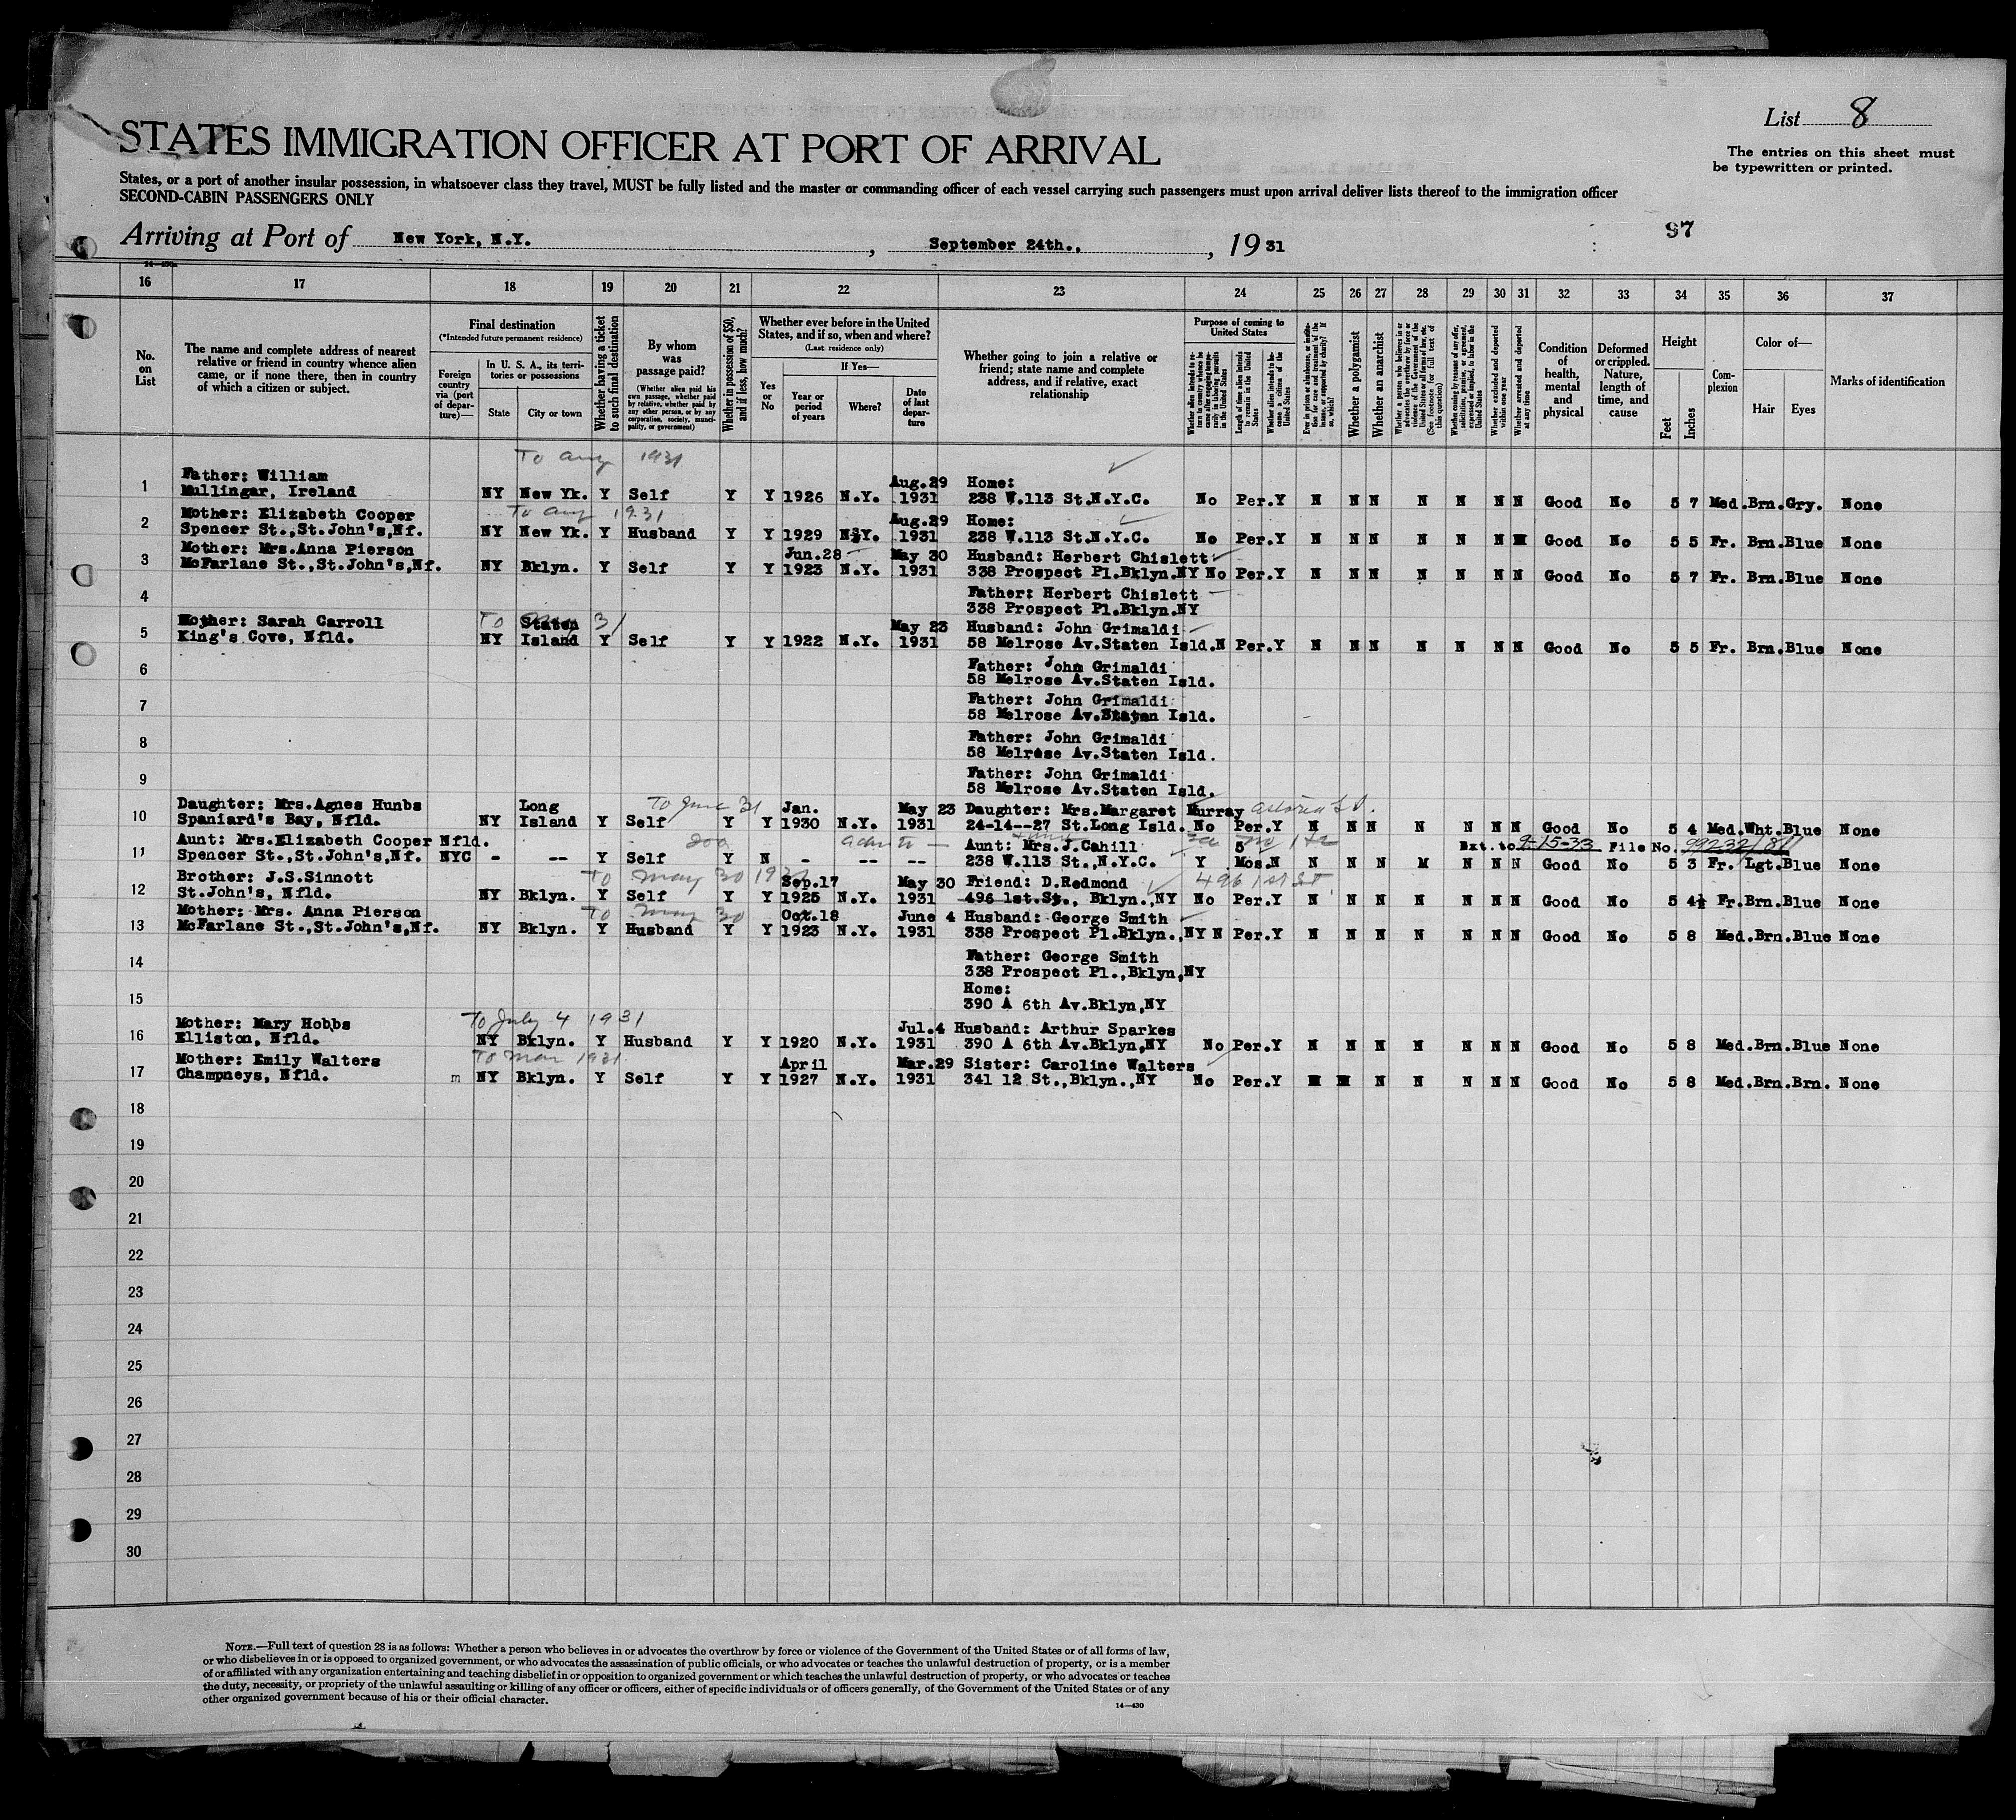 List 8
STATES IMMIGRATION OFFICER AT PORT OF ARRIVAL
The entries on this sheet must
be typewritten or printed.
States, or a port of another insular possession, in whatsoever class they travel, MUST be fully listed and the master or commanding officer of each vessel carrying such passengers must upon arrival deliver lists thereof to the immigration officer
SECOND-CABIN PASSENGERS ONLY
Arriving at Port of New York, N.Y. , September 24th., , 19 31
97
16 17 18 19 20 21 22 23 24 25 26 27 28 29 30 31 32 33 34 35 36 37
No. on List
The name and complete address of nearest relative or friend in country whence alien came, or if none there, then in country of which a citizen or subject.
Final destination
(*Intended future permanent residence)
Foreign country via (port of departure)—
In U. S. A., its territories or possessions
State
City or town
Whether having a ticket to such final destination
By whom was passage paid?
(Whether alien paid his own passage, whether paid by relative, whether paid by any other person, or by any corporation, society, municipality, or government)
Whether in possession of $50, and if less, how much?
Whether ever before in the United States, and if so, when and where?
(Last residence only)
Yes or No
If Yes—
Year or period of years
Where?
Date of last departure
Whether going to join a relative or friend; state name and complete address, and if relative, exact relationship
Purpose of coming to United States
Length of time alien intends to remain in the United States
Whether alien intends to become a citizen of the United States
Whether a polygamist
Whether an anarchist
(See footnote for full text of this question)
Whether excluded and deported within one year
Whether arrested and deported at any time
Condition of health, mental and physical
Deformed or crippled. Nature, length of time, and cause
Height
Feet
Inches
Complexion
Color of—
Hair
Eyes
Marks of identification
To Aug 1931
Father: William Aug.29 Home:
1 Mullingar, Ireland NY New Yk. Y Self Y Y 1926 N.Y. 1931 238 W.113 St.N.Y.C. No Per.Y N N N N N N N Good No 5 7 Med.Brn.Gry. None
To Aug 1931
Mother: Elizabeth Cooper Aug.29 Home:
2 Spencer St.,St.John's,Nf. NY New Yk. Y Husband Y Y 1929 N.Y. 1931 238 W.113 St.N.Y.C. No Per.Y N N N N N N N Good No 5 5 Fr. Brn.Blue None
Mother: Mrs.Anna Pierson Jun.28 May 30 Husband: Herbert Chislett
3 McFarlane St.,St.John's,Nf. NY Bklyn. Y Self Y Y 1923 N.Y. 1931 338 Prospect Pl.Bklyn.NY No Per.Y N N N N N N N Good No 5 7 Fr. Brn.Blue None
4 Father: Herbert Chislett
338 Prospect Pl.Bklyn.NY
Mother: Sarah Carroll To Staten 31 May 23 Husband: John Grimaldi
5 King's Cove, Nfld. NY Island Y Self Y Y 1922 N.Y. 1931 58 Melrose Av.Staten Isld.N Per.Y N N N N N N N Good No 5 5 Fr. Brn.Blue None
6 Father: John Grimaldi
58 Melrose Av.Staten Isld.
7 Father: John Grimaldi
58 Melrose Av.Staten Isld.
8 Father: John Grimaldi
58 Melrose Av.Staten Isld.
9 Father: John Grimaldi
58 Melrose Av.Staten Isld.
Daughter: Mrs.Agnes Hunbs Long To June 31 Jan. May 23 Daughter: Mrs.Margaret Murray Astoria L I.
10 Spaniard's Bay, Nfld. NY Island Y Self Y Y 1930 N.Y. 1931 24-14--27 St.Long Isld. No Per.Y N N N N N N N Good No 5 4 Med.Wht.Blue None
Aunt: Mrs.Elizabeth Cooper Nfld. 200 Aunt: Mrs.J.Cahill 5 Ext.to 9-15-33 File No. 99232/87
11 Spencer St.,St.John's,Nf. NYC - -- Y Self Y N - -- -- 238 W.113 St.,N.Y.C. Y Mos.N N N N M N N N Good No 5 3 Fr. Lgt.Blue None
To May 30 1931
Brother: J.S.Sinnott Sep.17 May 30 Friend: D.Redmond 496 1st St.
12 St.John's, Nfld. NY Bklyn. Y Self Y Y 1925 N.Y. 1931 496 1st.St., Bklyn.,NY No Per.Y N N N N N N N Good No 5 4½ Fr.Brn.Blue None
Mother: Mrs. Anna Pierson To May 30 Oct.18 June 4 Husband: George Smith
13 McFarlane St.,St.John's,Nf. NY Bklyn. Y Husband Y Y 1923 N.Y. 1931 338 Prospect Pl.Bklyn.,NY N Per.Y N N N N N N N Good No 5 8 Med.Brn.Blue None
14 Father: George Smith
338 Prospect Pl.,Bklyn,NY
15 Home:
390 A 6th Av.Bklyn,NY
To July 4 1931
Mother: Mary Hobbs Jul.4 Husband: Arthur Sparkes
16 Elliston, Nfld. NY Bklyn. Y Husband Y Y 1920 N.Y. 1931 390 A 6th Av.Bklyn,NY No Per.Y N N N N N N N Good No 5 8 Med.Brn.Blue None
To Mar 1931
Mother: Emily Walters April Mar.29 Sister: Caroline Walters
17 Champneys, Nfld. m NY Bklyn. Y Self Y Y 1927 N.Y. 1931 341 12 St.,Bklyn.,NY No Per.Y N N N N N N N Good No 5 8 Med.Brn.Brn. None
18
19
20
21
22
23
24
25
26
27
28
29
30
NOTE.—Full text of question 28 is as follows: Whether a person who believes in or advocates the overthrow by force or violence of the Government of the United States or of all forms of law,
or who disbelieves in or is opposed to organized government, or who advocates the assassination of public officials, or who advocates or teaches the unlawful destruction of property, or is a member
of or affiliated with any organization entertaining and teaching disbelief in or opposition to organized government or which teaches the unlawful destruction of property, or who advocates or teaches
the duty, necessity, or propriety of the unlawful assaulting or killing of any officer or officers, either of specific individuals or of officers generally, of the Government of the United States or of any
other organized government because of his or their official character.
14—430